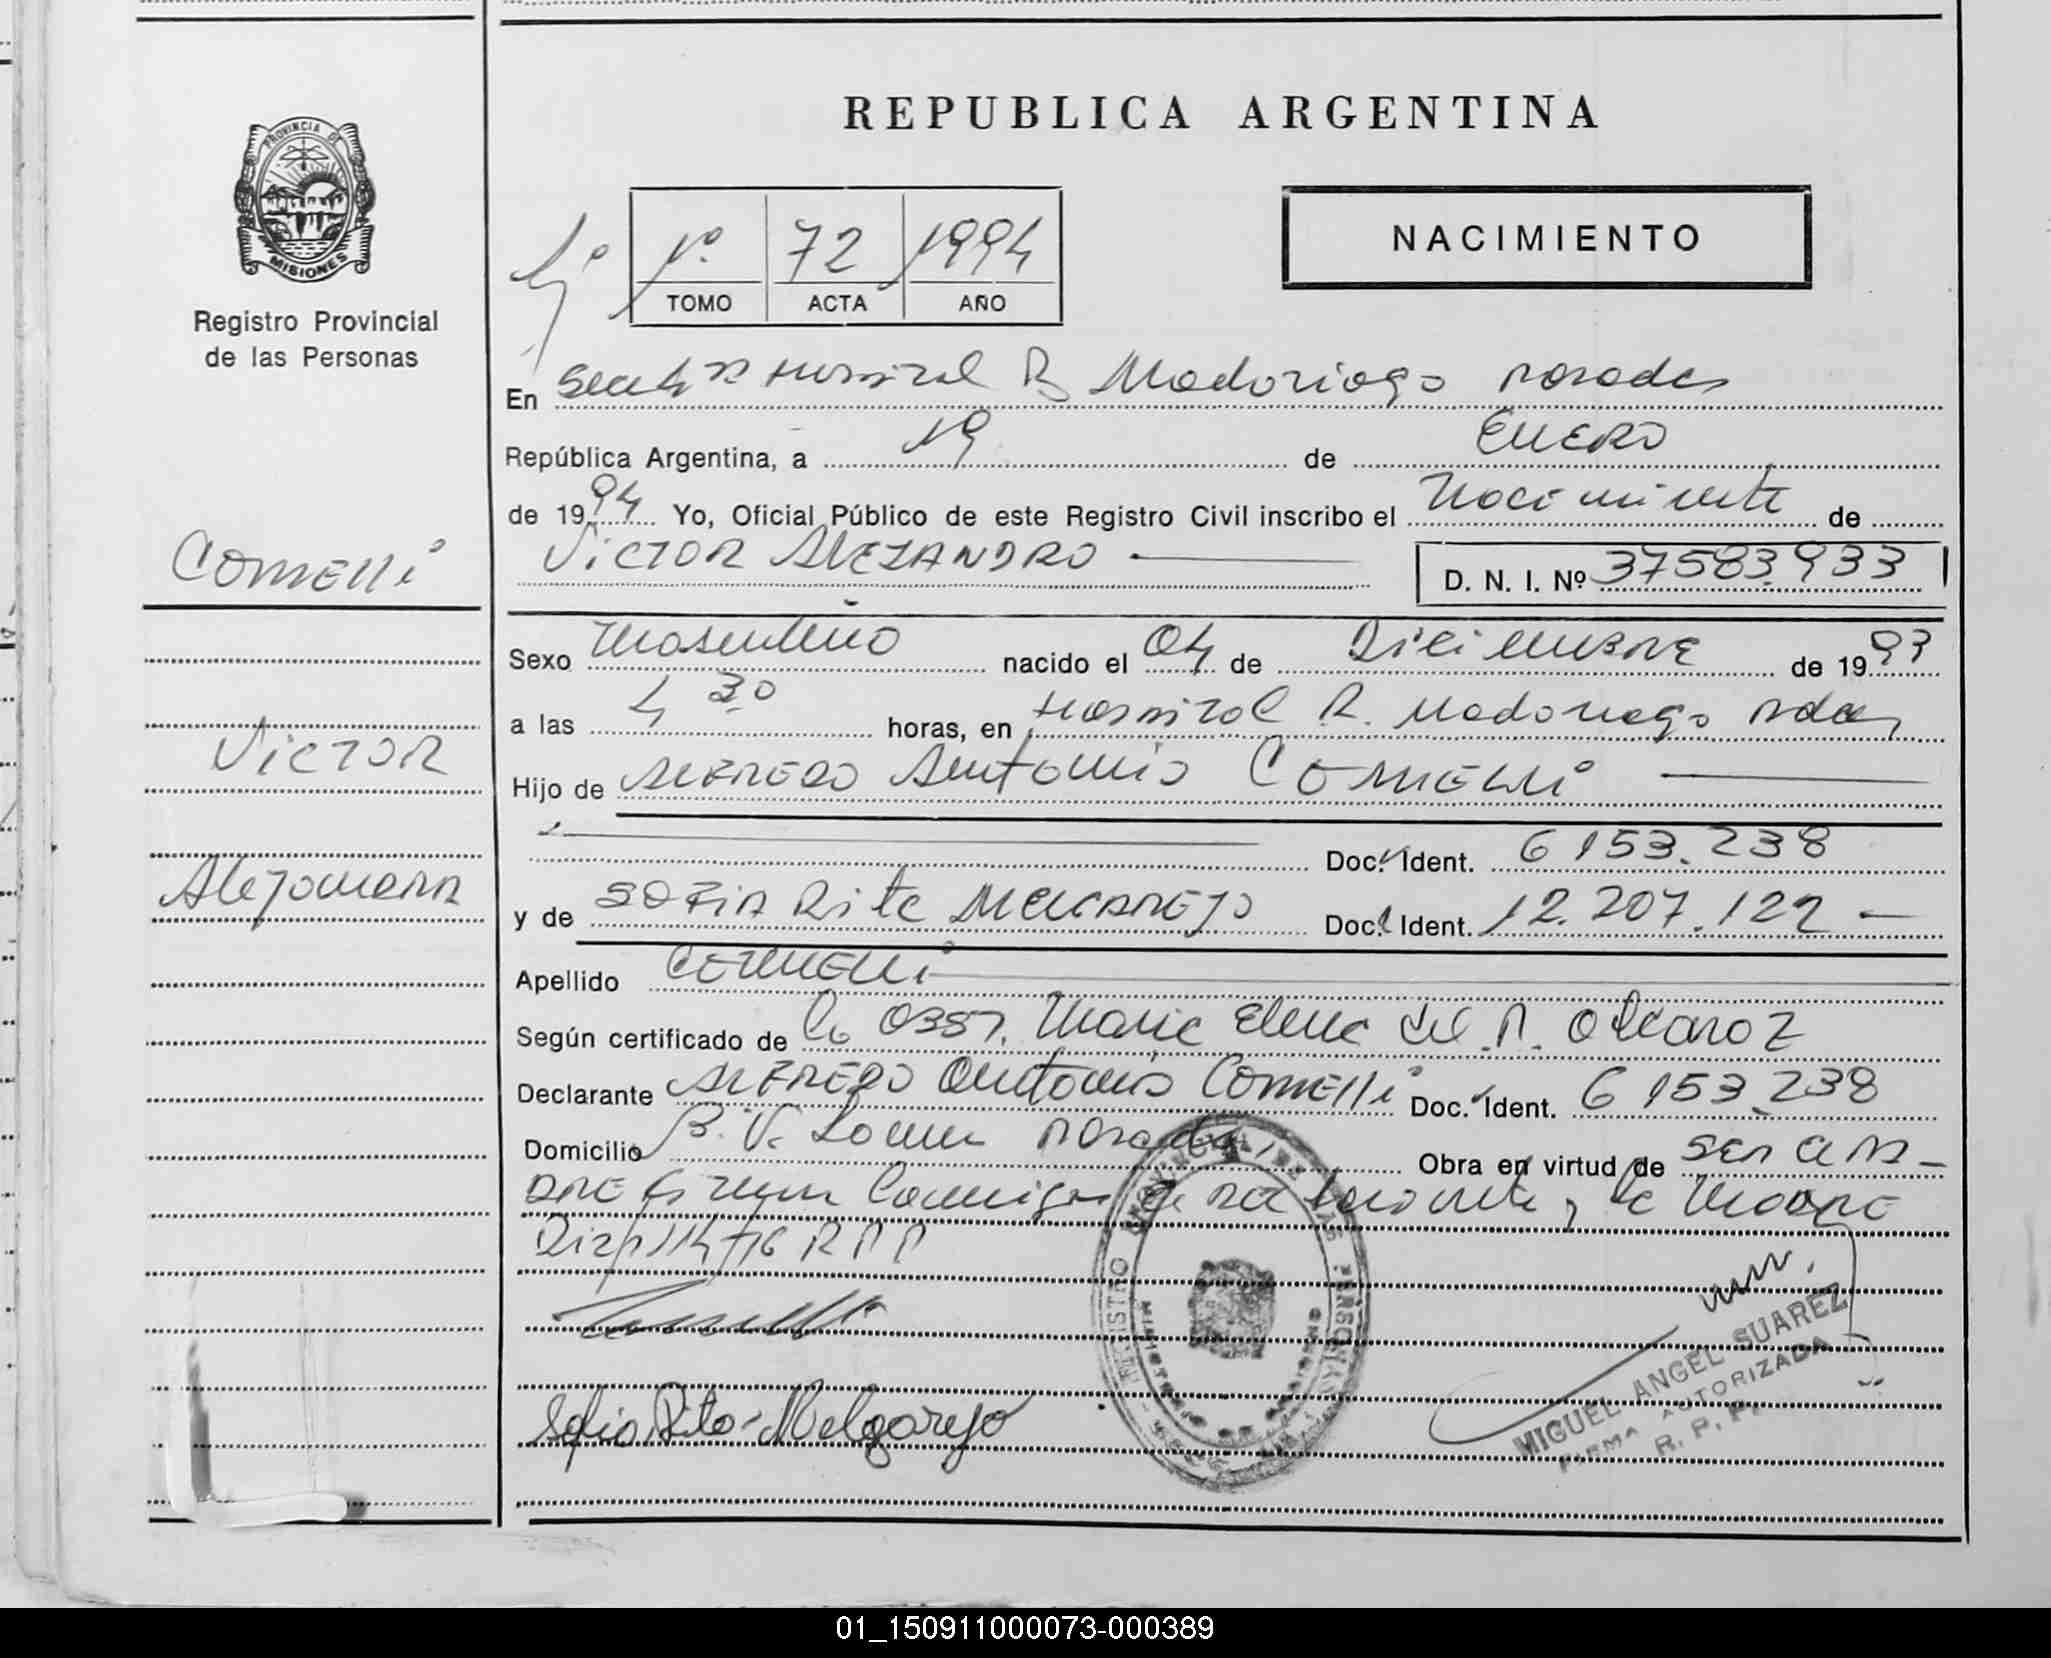 REPUBLICA ARGENTINA
PROVINCIA DE
MISIONES
Registro Provincial
de las Personas
1º 72 1994
TOMO ACTA AÑO
NACIMIENTO
En Hospital R Madariaga Posadas
República Argentina, a 19 de ENERO
de 1994 Yo, Oficial Público de este Registro Civil inscribo el Nacimiento de
VICTOR ALEJANDRO
D. N. I. Nº 37583.933
Comelli
Victor
Alejandro
Sexo Masculino nacido el 04 de Diciembre de 1993
a las 4 30 horas, en Hospital R. Madariaga Pdas
Hijo de ALFREDO Antonio COMELLI
Doc. Ident. 6 153.238
y de SOFIA Rita MELGAREJO Doc. Ident. 12.207.122
Apellido COMELLI
Según certificado de la Obst. Maria Elena del R. Alcaraz
Declarante ALFREDO Antonio Comelli Doc. Ident. 6 153.238
Domicilio B. V. Posadas Obra en virtud de ser el PA-
DRE firman Conmigo el declarante y la MADRE
Disp 114/76 R P P
Sofia Rita Melgarejo
MIGUEL ANGEL SUAREZ
FIRMA AUTORIZADA
R. P. P.
01_150911000073-000389